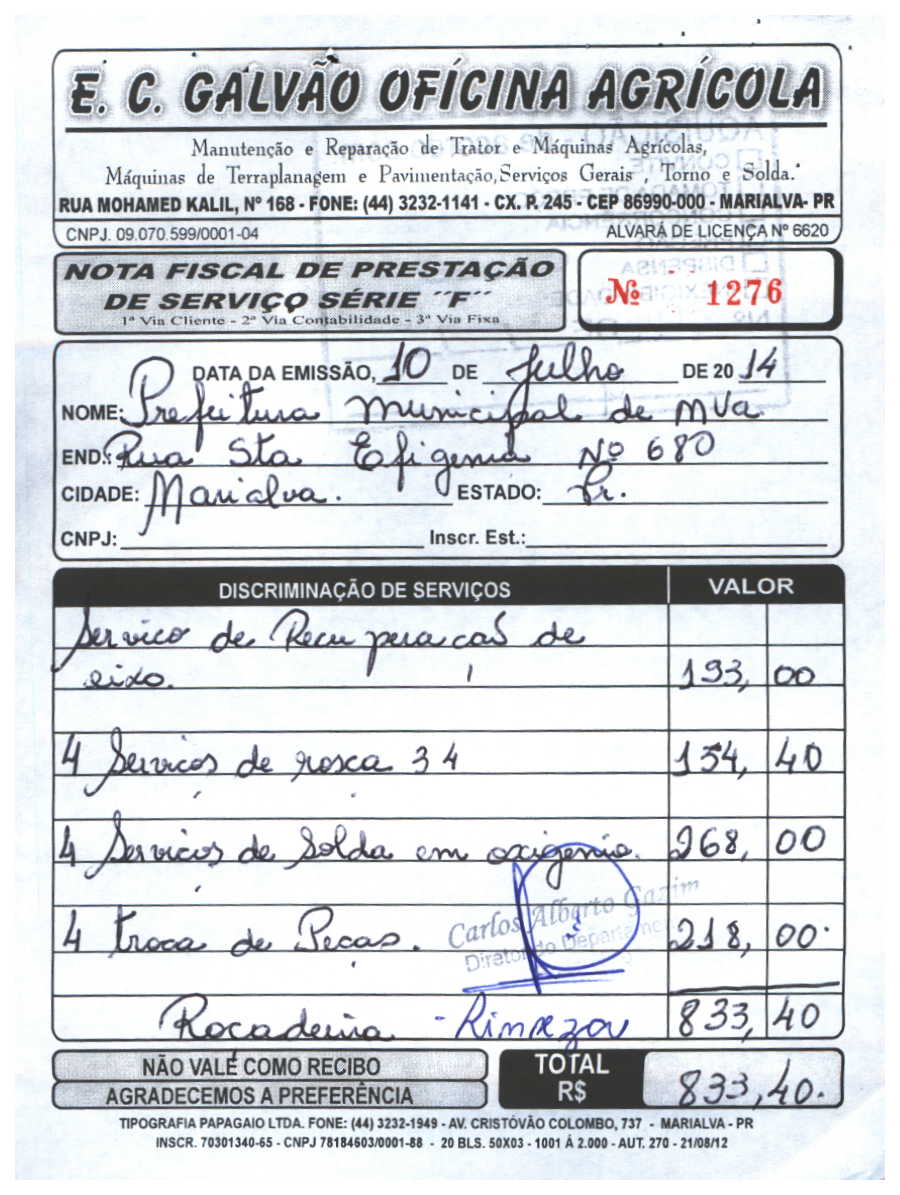 E. C. GALVÃO OFÍCINA AGRÍCOLA
Manutenção e Reparação de Trator e Máquinas Agrícolas,
Máquinas de Terraplanagem e Pavimentação, Serviços Gerais, Torno e Solda.
RUA MOHAMED KALIL, Nº 168 - FONE: (44) 3232-1141 - CX. P. 245 - CEP 86990-000 - MARIALVA- PR
CNPJ. 09.070.599/0001-04 ALVARÁ DE LICENÇA Nº 6620
NOTA FISCAL DE PRESTAÇÃO
DE SERVIÇO SÉRIE ´´F´´
1ª Via Cliente - 2ª Via Contabilidade - 3ª Via Fixa
Nº 1276
DATA DA EMISSÃO, 10 DE Julho DE 20 14
NOME: Prefeitura municipal de mva
END.: Rua Sta Efigenia Nº 680
CIDADE: Marialva. ESTADO: Pr.
CNPJ: Inscr. Est.:
DISCRIMINAÇÃO DE SERVIÇOS VALOR
Serviço de Recuperação de
eixo. 193,00
4 Serviços de rosca 34 154,40
4 Serviços de Solda em oxigenio. 268,00
Carlos Alberto Gazim
4 troca de Peças. 218,00
Diretor do Departamen
Roçadeira - 833,40
NÃO VALE COMO RECIBO
AGRADECEMOS A PREFERÊNCIA
TOTAL
R$ 833,40.
TIPOGRAFIA PAPAGAIO LTDA. FONE: (44) 3232-1949 - AV. CRISTÓVÃO COLOMBO, 737 - MARIALVA - PR
INSCR. 70301340-65 - CNPJ 78184603/0001-88 - 20 BLS. 50X03 - 1001 Á 2.000 - AUT. 270 - 21/08/12